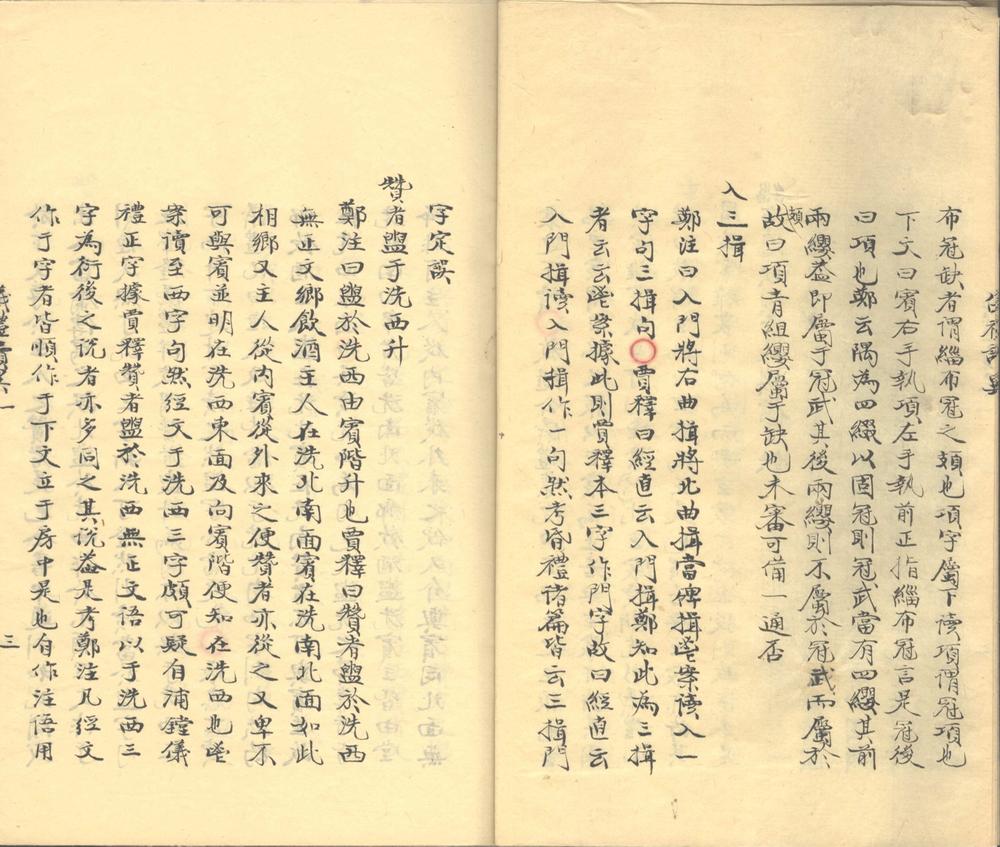 布冠缺者謂緇布冠之頍也項字屬下讀項謂冠項也
下文曰賓右手執項左手執前正指緇布冠言是冠後
曰項也鄭云隅為四綴以固冠則冠武當有四纓其前
兩纓蓋即屬于冠武其後兩纓則不屬於冠武而屬於
頍
故曰項青組纓屬于缺也未審可備一通否
入三揖
鄭注曰入門將右曲揖將北曲揖當碑揖堂案讀入一
字句三揖句○賈釋曰經直云入門揖鄭知此為三揖
者云云堂案據此則賈釋本三字作門字故曰經直云
入門揖讀入門揖作一句然考昏禮諸篇皆云三揖門
字定誤
贊者盥于洗西升
鄭注曰盥於洗西由賓階升也賈釋曰贊者盥於洗西
無正文鄉飲酒主人在洗北南面賓在洗南北面如此
相鄉又主人從內賓從外來之便贊者亦從之又卑不
可與賓並明在洗西東面及向賓階便知在洗西也堂
案讀至西字句然經文于洗西三字頗可疑自浦鏜儀
禮正字據賈釋贊者盥於洗西無正文語以于洗西三
字為衍後之說者亦多同之其說蓋是考鄭注凡經文
作于字者皆順作于下文立于房中是也自作注語用
三